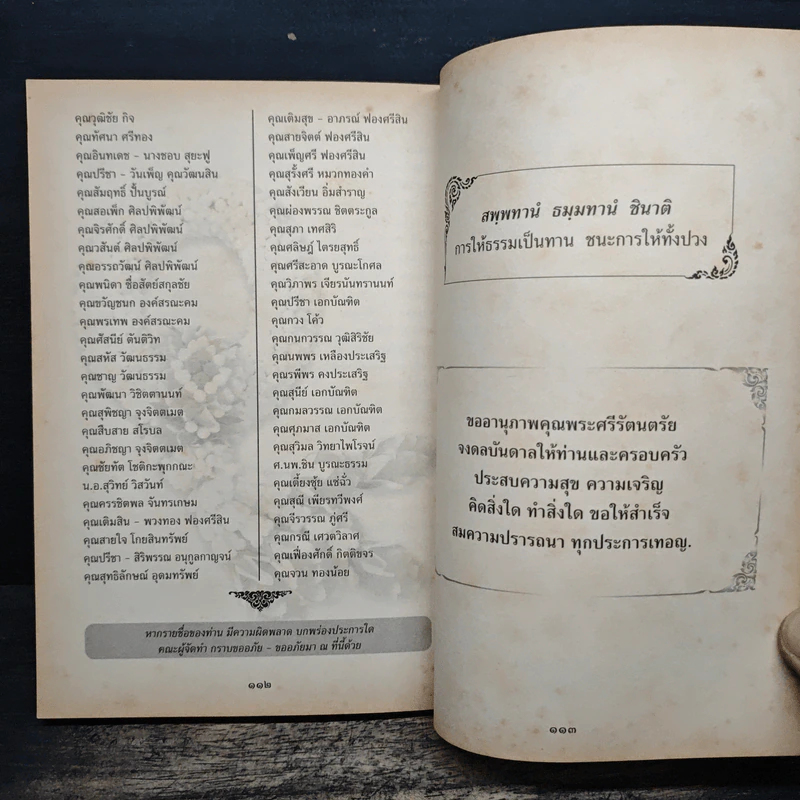 คุณวุฒิชัย กิจ
คุณทัศนา ศรีทอง
คุณอินทเดช - นางชอบ สุยะฟู
คุณปรีชา - วันเพ็ญ คุณวัฒนสิน
คุณสัมฤทธิ์ ปั้นบูรณ์
คุณสอเพ็ก ศิลปพิพัฒน์
คุณจิรศักดิ์ ศิลปพิพัฒน์
คุณวสันต์ ศิลปพิพัฒน์
คุณอรรถวัฒน์ ศิลปพิพัฒน์
คุณพนิดา ซื่อสัตย์สกุลชัย
คุณขวัญชนก องค์สรณะคม
คุณพรเทพ องค์สรณะคม
คุณศัสนีย์ ตันติวิท
คุณสหัส วัฒนธรรม
คุณชาญ วัฒนธรรม
คุณพัฒนา วิชิตตานนท์
คุณสุพิชญา จุงจิตตเมต
คุณสืบสาย สโรบล
คุณอภิชญา จุงจิตตเมต
คุณชัยทัต โชติกะพุกกณะ
น.อ.สุวิทย์ วิสวันท์
คุณครรชิตพล จันทรเกษม
คุณเติมสิน - พวงทอง ฟองศรีสิน
คุณสายใจ โกยสินทรัพย์
คุณปรีชา - สิริพรรณ อนุกูลกาญจน์
คุณสุทธิลักษณ์ อุดมทรัพย์
คุณเติมสุข - อาภรณ์ ฟองศรีสิน
คุณสายจิตต์ ฟองศรีสิน
คุณเพ็ญศรี ฟองศรีสิน
คุณสุรั้งศรี หมวกทองคำ
คุณสังเวียน อิ่มสำราญ
คุณผ่องพรรณ ชิตตระกูล
คุณสุภา เทศสิริ
คุณศลิษฎ์ ไตรยสุทธิ์
คุณศรีสะอาด บูรณะโกศล
คุณวิภาพร เจียรนันทรานนท์
คุณปรีชา เอกบัณฑิต
คุณกวง โค้ว
คุณกนกวรรณ วุฒิสิริชัย
คุณนพพร เหลืองประเสริฐ
คุณรพีพร คงประเสริฐ
คุณสุนีย์ เอกบัณฑิต
คุณกมลวรรณ เอกบัณฑิต
คุณศุภมาส เอกบัณฑิต
คุณสุวิมล วิทยาไพโรจน์
ศ.นพ.ชิน บูรณะธรรม
คุณเตี้ยงซุ้ย แซ่ฉั่ว
คุณสุณี เพียรทวีพงค์
คุณจีรวรรณ ภู่ศรี
คุณกรณี เศวตวิลาศ
คุณเฟื่องศักดิ์ กิตติขจร
คุณจวน ทองน้อย
หากรายชื่อของท่าน มีความผิดพลาด บกพร่องประการใด
คณะผู้จัดทำ กราบขออภัย - ขออภัยมา ณ ที่นี้ด้วย
๑๑๒
สพฺพทานํ ธมฺมทานํ ชินาติ
การให้ธรรมเป็นทาน ชนะการให้ทั้งปวง
ขออานุภาพคุณพระศรีรัตนตรัย
จงดลบันดาลให้ท่านและครอบครัว
ประสบความสุข ความเจริญ
คิดสิ่งใด ทำสิ่งใด ขอให้สำเร็จ
สมความปรารถนา ทุกประการเทอญ.
๑๑๓